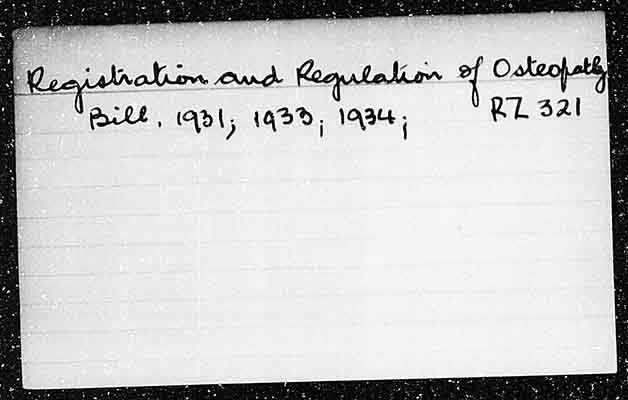 Registration and Regulation of Osteopathy
Bill, 1931; 1933; 1934; RZ 321